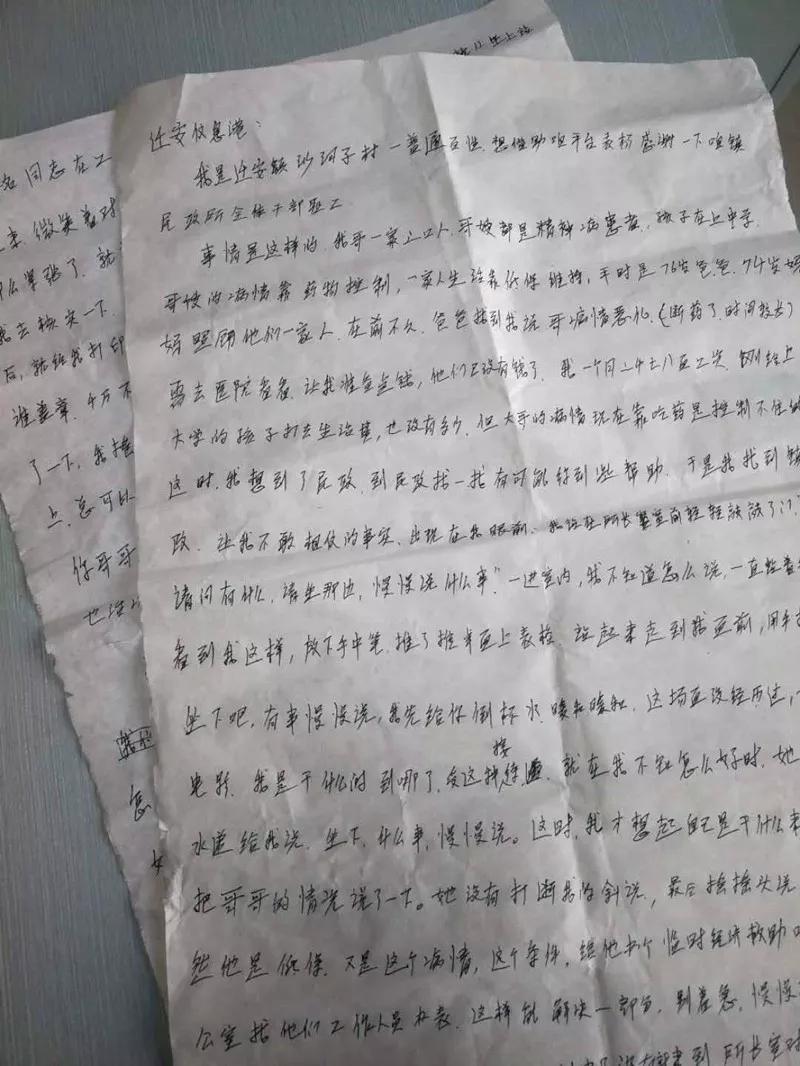 迁安信息港：
我是迁安镇沙河子村一普通百姓.想借助咱平台表扬感谢一下咱镇
民政所全体干部职工
事情是这样的.我哥一家三口人.哥嫂都是精神病患者.孩子在上中学.
哥嫂的病情靠药物控制,一家人生活靠低保维持,平时是76岁爸爸.74岁妈
妈照顾他们一家人.在前不久.爸爸找到我说哥病情恶化.(断药了.时间较长)
需去医院看看.让我准备点钱,他们已没有钱了.我一个月二千七八百工资.刚给上
大学的孩子打去生活费,也没有多少.但大哥的病情现在靠吃药是控制不住的
这时.我想到了民政.到民政找一找有可能得到些帮助.于是我找到镇
政.让我不敢相信的事实.出现在我眼前.我站在所长室门前轻轻敲敲了门.
请问有什么.请坐那边,慢慢说什么事"一进室内,我不知道怎么说,一直
看到我这样,放下手中笔.推了推桌面上表格.站起来走到我面前,用手
坐下吧,有事慢慢说,我先给你倒杯水.暖和暖和.这场面没经历过,
电影.我是干什么的到哪了.受这接待.就在我不知怎么好时.她
水递给我说.坐下.什么事,慢慢说。这时,我才想起自己是干什么来
把哥哥的情况说了一下。她没有打断我的诉说,最后摇摇头说
然他是低保.又是这个病情,这个条件.给他办个临时经济救助
公室找他们工作人员办表.这样能解决一部分.别着急,慢慢
到所长室对
名同志在工
微笑着对
什么紧张了.就
我去核实一下.
后,就给我打印
谁盖章.千万不
了一下.我接
上.总可以
你哥哥
也没
怎
女
坐上站